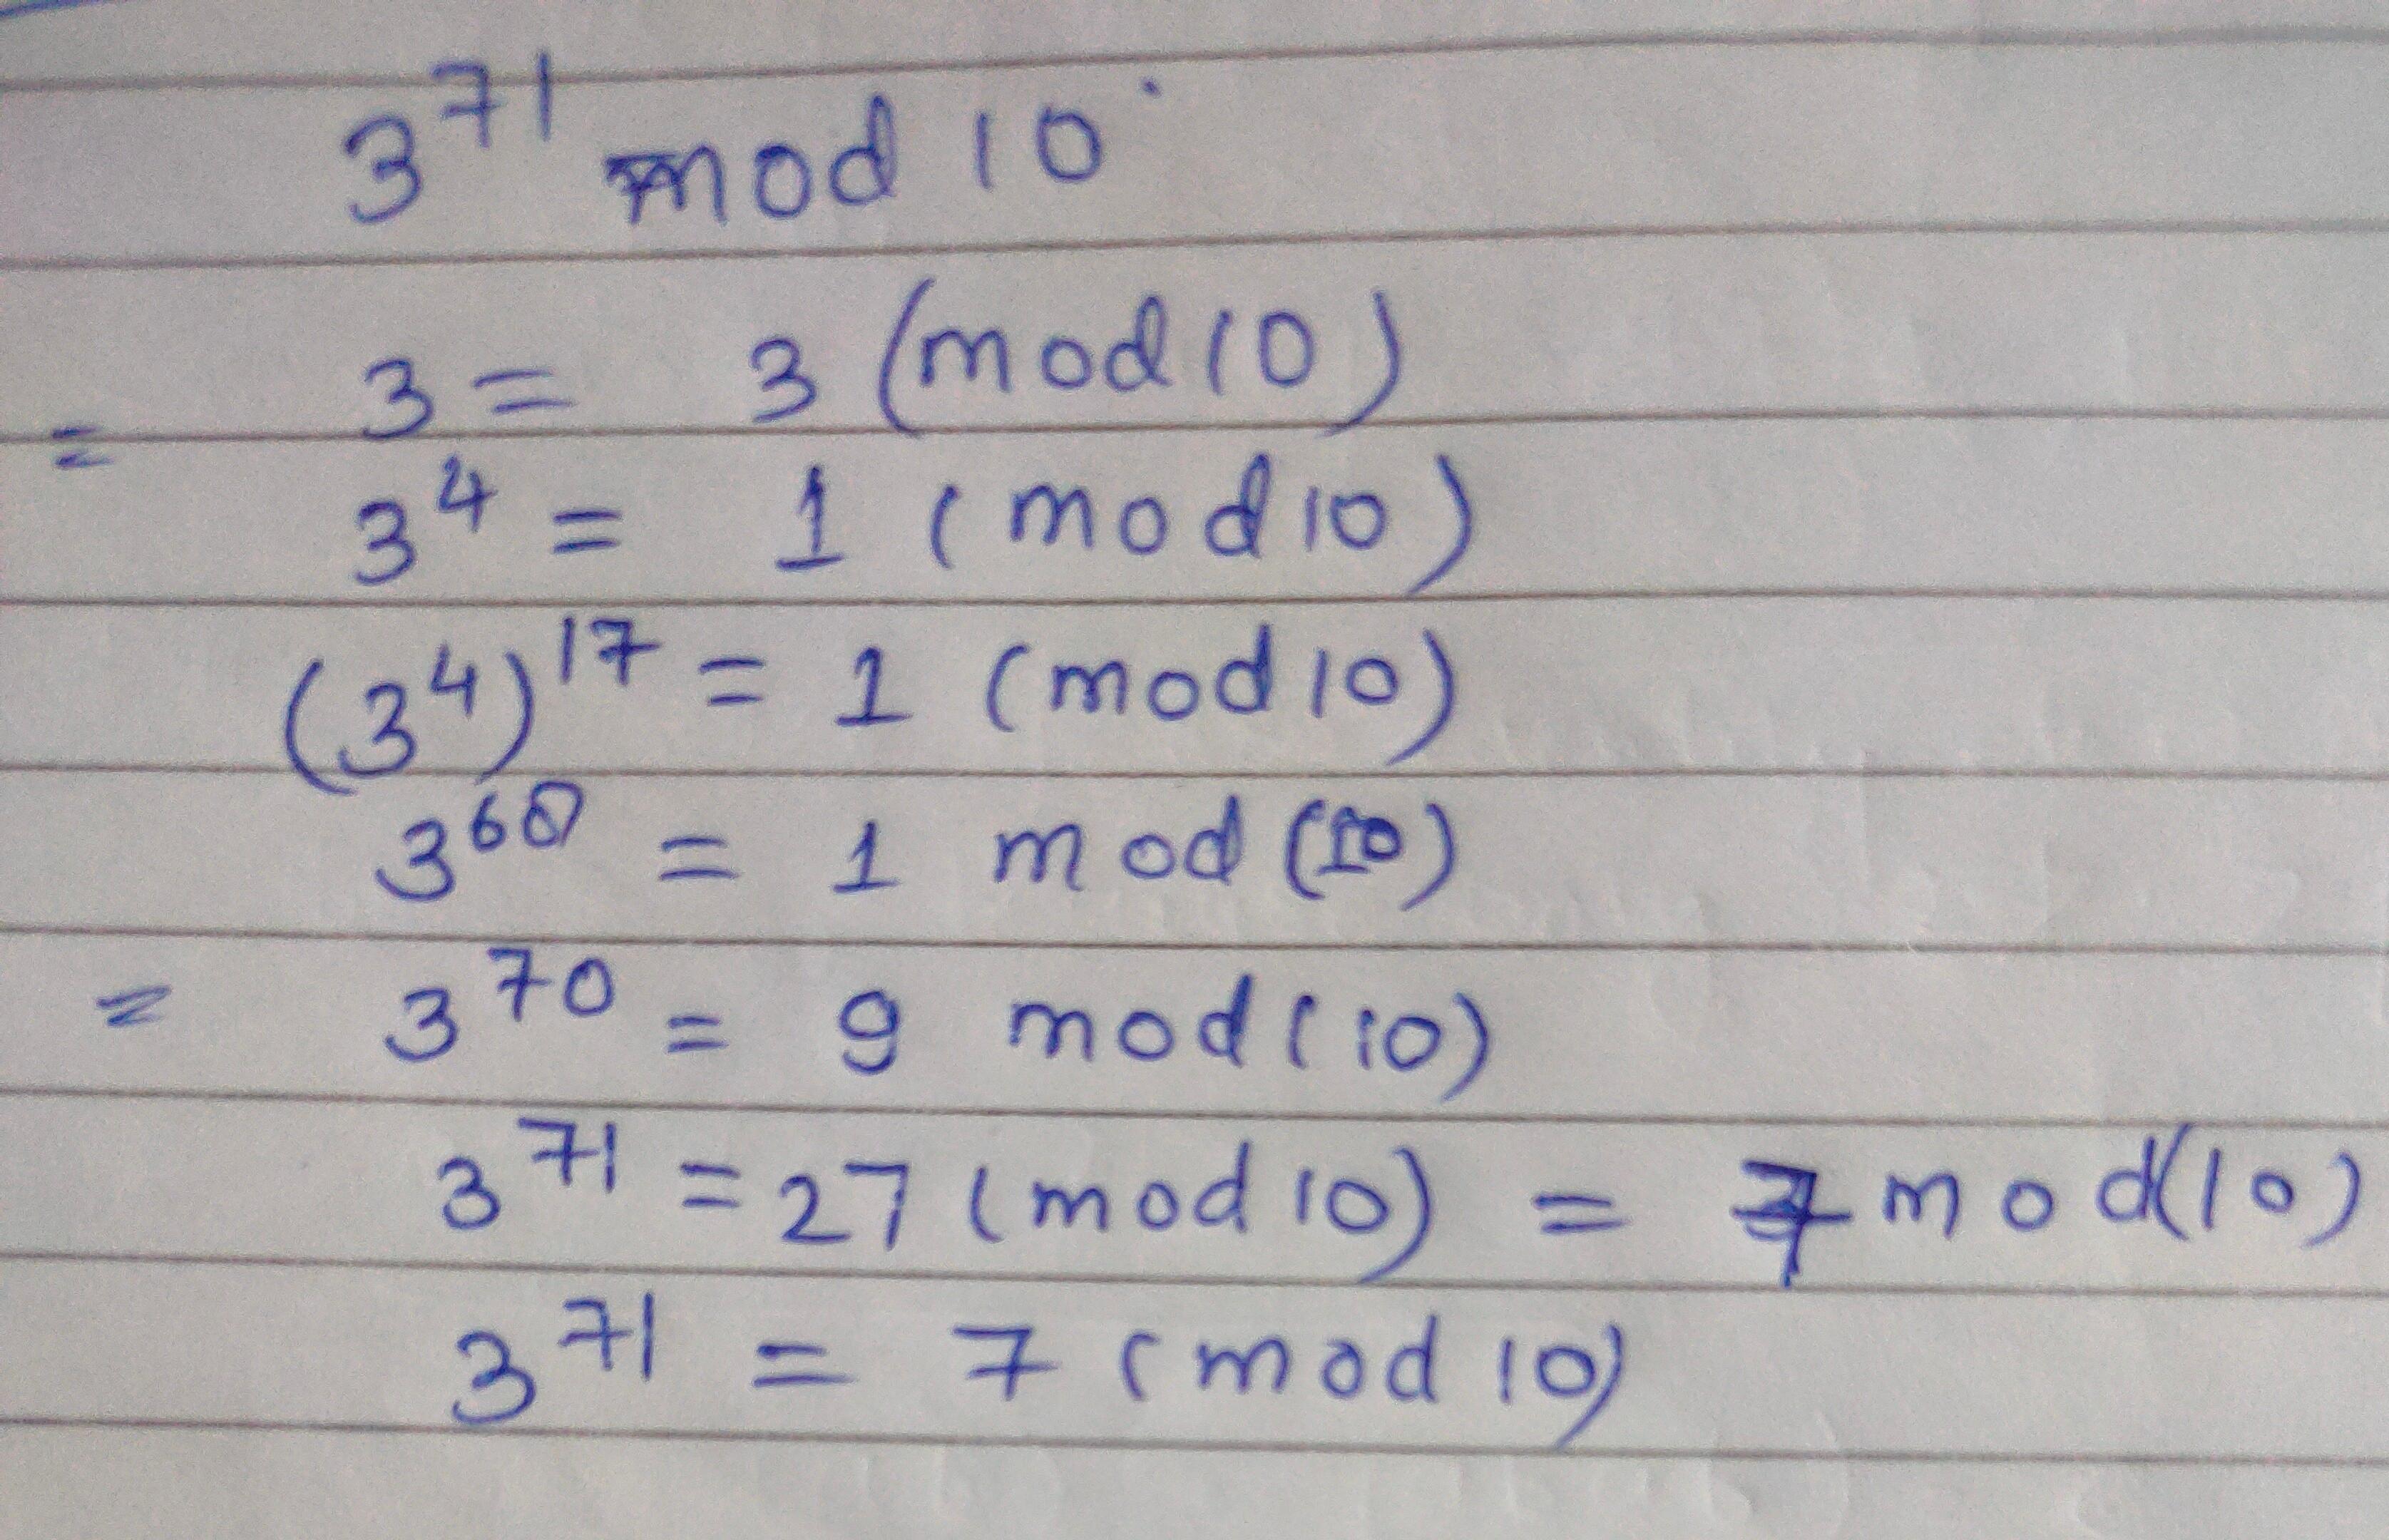 3^71 mod 10
= 3 = 3 (mod 10)
3^4 = 1 (mod 10)
(3^4)^17 = 1 (mod 10)
3^68 = 1 mod (10)
= 3^70 = 9 mod (10)
3^71 = 27 (mod 10) = 7 mod (10)
3^71 = 7 (mod 10)